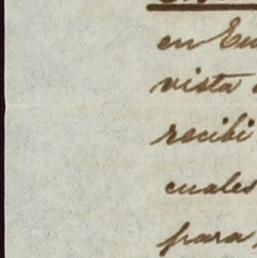 en Eu
vista
recibi
cuales
para